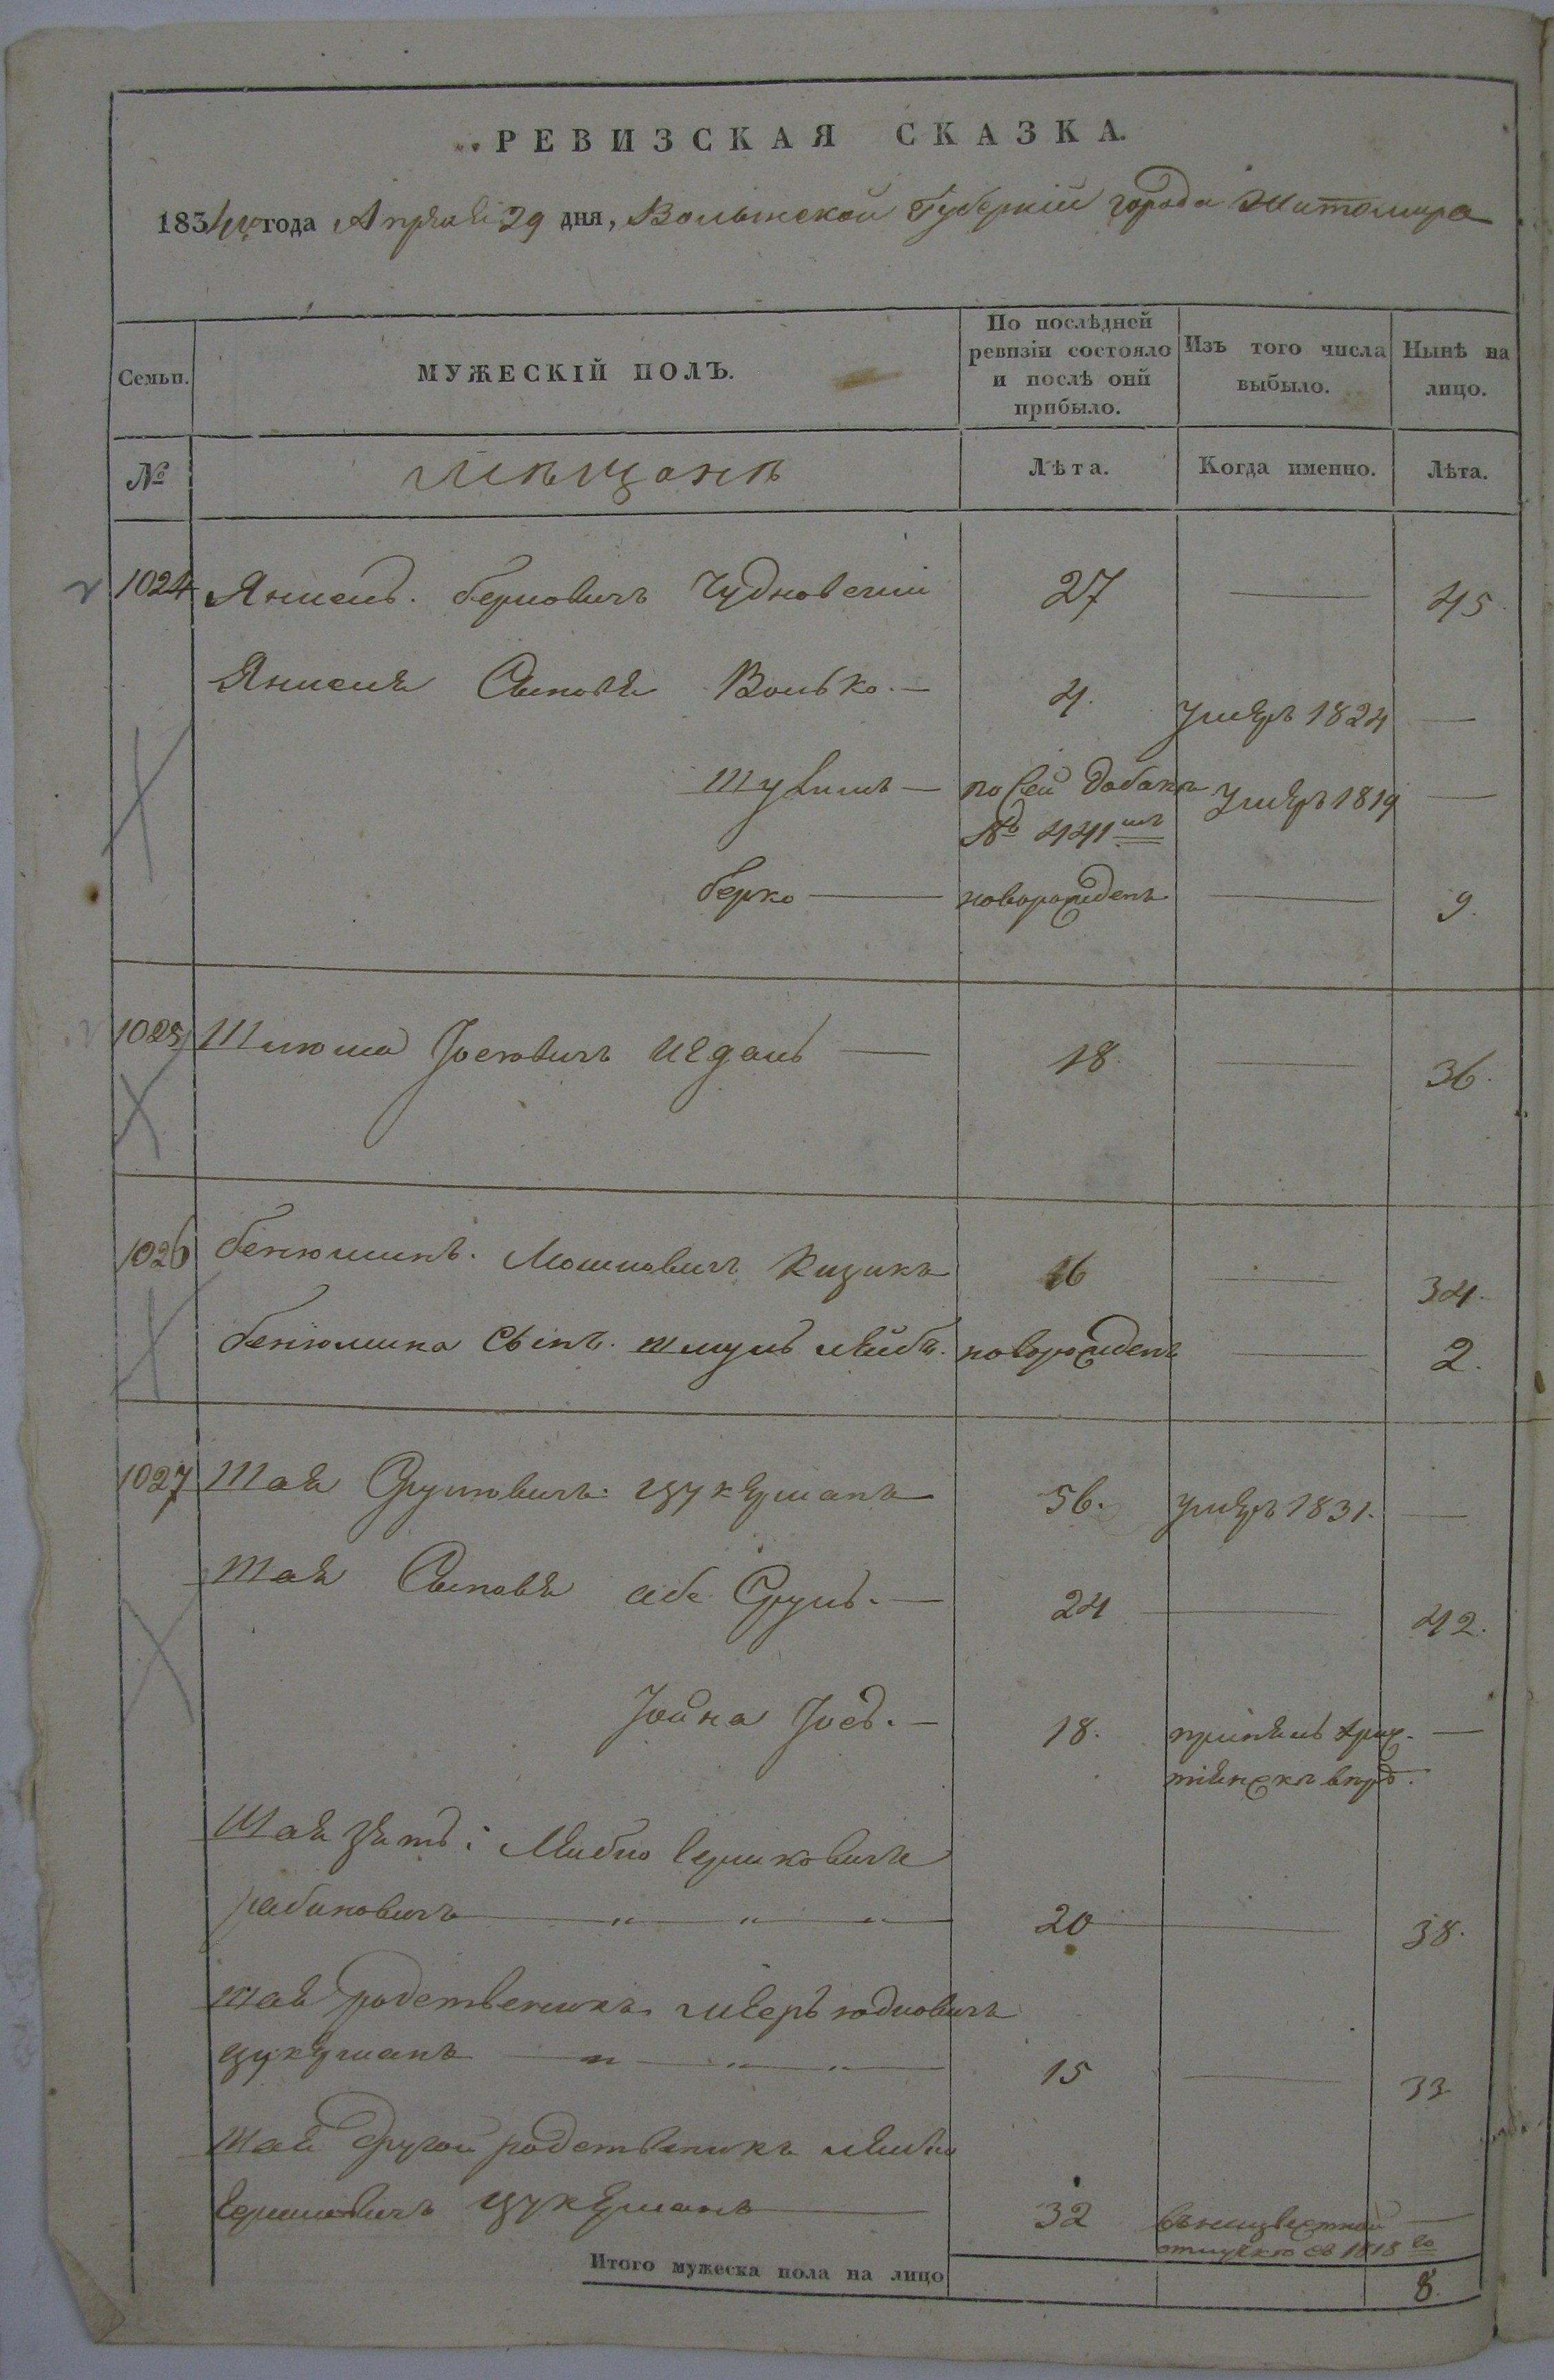 РЕВИЗСКАЯ СКАЗКА.
1834го года Апреля 29 дня, Волынской Губернiи города Житомира
Семьи.
МУЖЕСКIЙ ПОЛЪ.
По послѣдней ревизiи состояло и послѣ оной прибыло.
Изъ того числа выбыло.
Нынѣ на лицо.
№
мѣщанѣ
Лѣта.
Когда именно.
Лѣта.
1024 Янкель. берковичъ Чудновскiй 27 — 45
Янкеля Сыновя Волько — 4. умеръ 1824 —
по сей
№ 441 умеръ 1819 —
берко — новорожденъ — 9.
1025 Шлюма Iосiовичъ — 18 — 36.
1026 бенюминъ. Мошковичъ Кицикъ 16 — 34.
бенюмина Сынъ. шмуль лейбъ. новорожденъ — 2.
1027 Шая Сруловичъ цукерманъ 56. умеръ 1831. —
Шая Сыновя абе Сруль. — 24 — 42.
Iойна Iосъ. — 18. принялъ хрис- —
Шая зять: Лейбю
рабиновичъ — " — " — " — 20 — 38.
шая родственикъ мееръ юдковичъ
цукерманъ — " — " — " — 15 — 33
шая другой родственикъ лейбю
цукерманъ — 32 въ неизвестной —
отлучкѣ съ 1818 го
Итого мужеска пола на лицо 8.